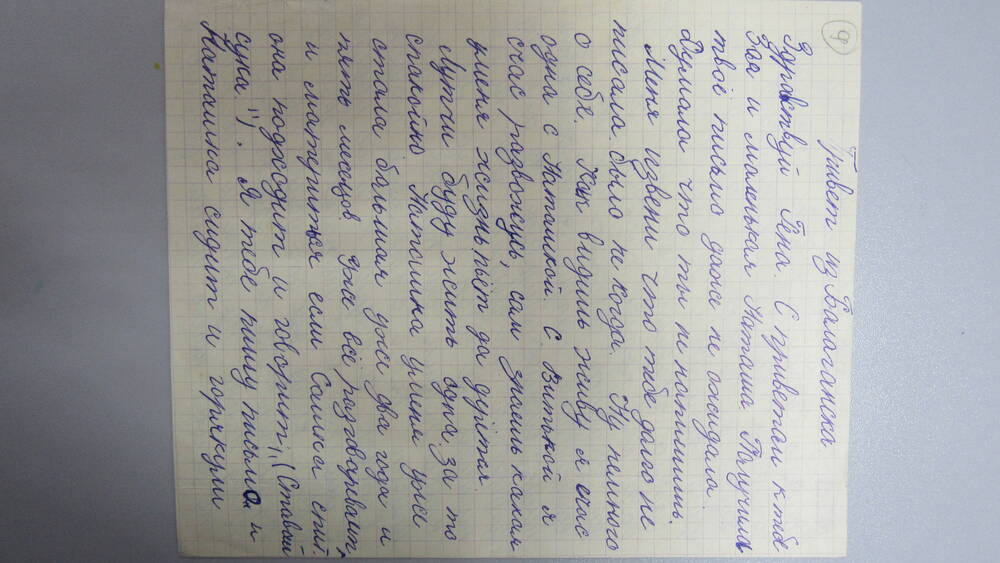 9
Привет из Балаганска
Здравствуй Гена. С приветам к тебе
Зоя и маленькая Наташа. Палучила
твоё письмо даже не ожидала.
Думала что ты не напишишь.
Меня извени что тебе долго не
писала было не когда. Ну немного
о себе. Как видишь живу я счас
одна с Наташкой. С Витькой я
счас развожусь, сам знаешь какая
уменя жизнь пьёт да дерётся.
Лутчи буду жить одна за то
спакойно. Наташка уменя уже
стала бальшая уже два года и
пять месецов. Уже всё разговаревает,
и материться если Сашка спит
она подходит и говорит „(Ставай
сука"). Я тебе пишу письмо и
Наташка сидит и горякули